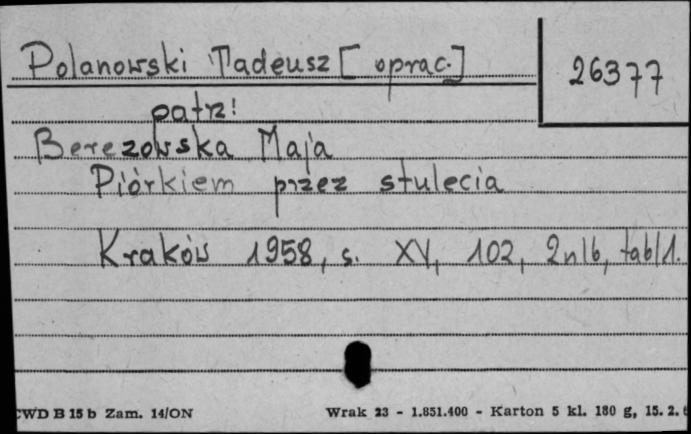 Polanowski Tadeusz [oprac.]
26377
patrz!
Berezowska Maja
Piórkiem przez stulecia
Kraków 1958, s. XV, 102, 2nlb, tabl 1.
CWD B 15 b Zam. 14/ON
Wrak 23 - 1.851.400 - Karton 5 kl. 180 g, 15. 2.